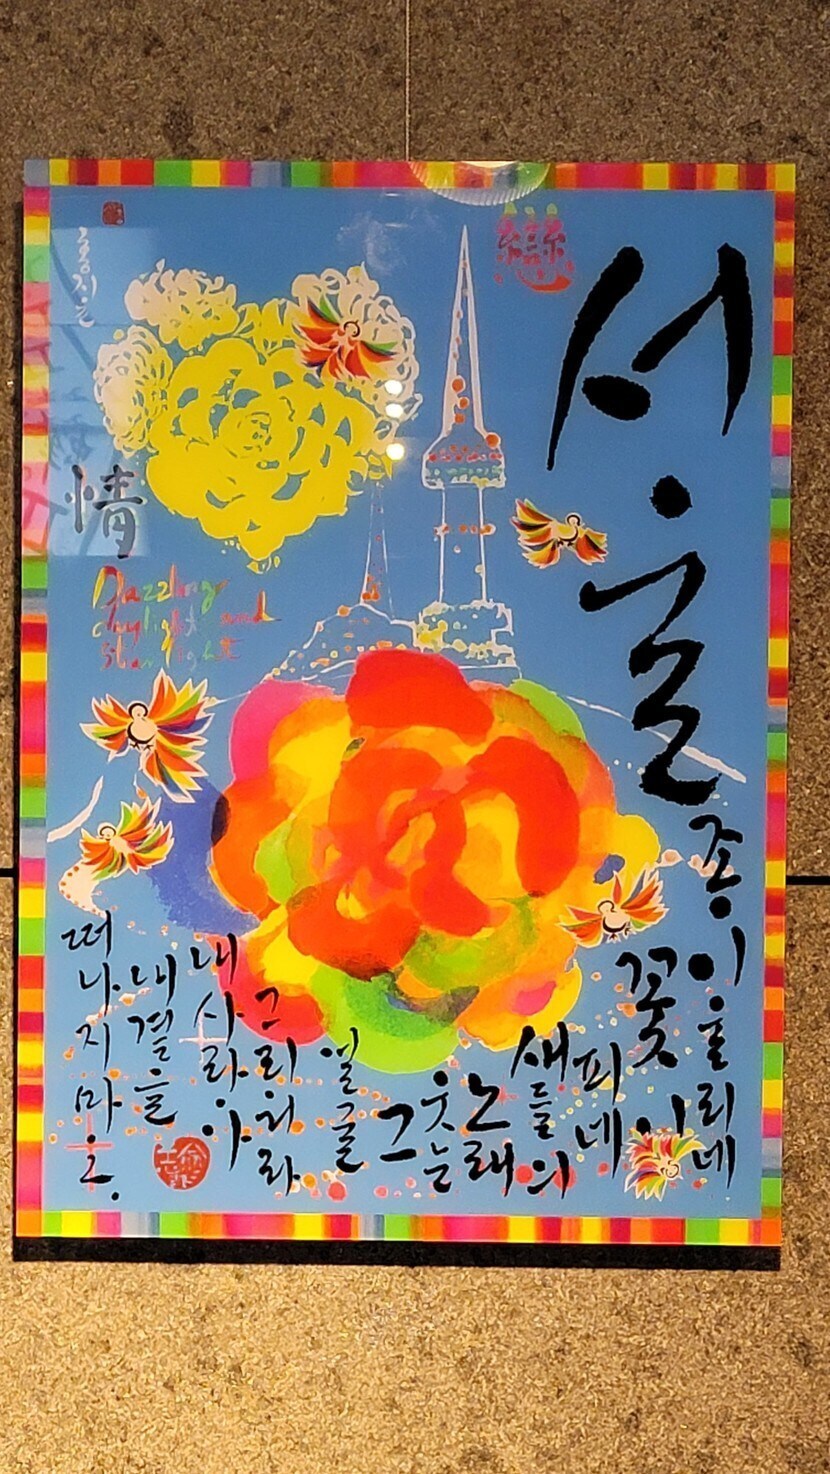 서울
종이 울리네
꽃이
피네
새들의
노래
웃는
그
얼굴
그리워라
내 사랑아
내 곁을
떠나지 마오.
戀
홍지윤
情
Dazzling
daylight and
starlight